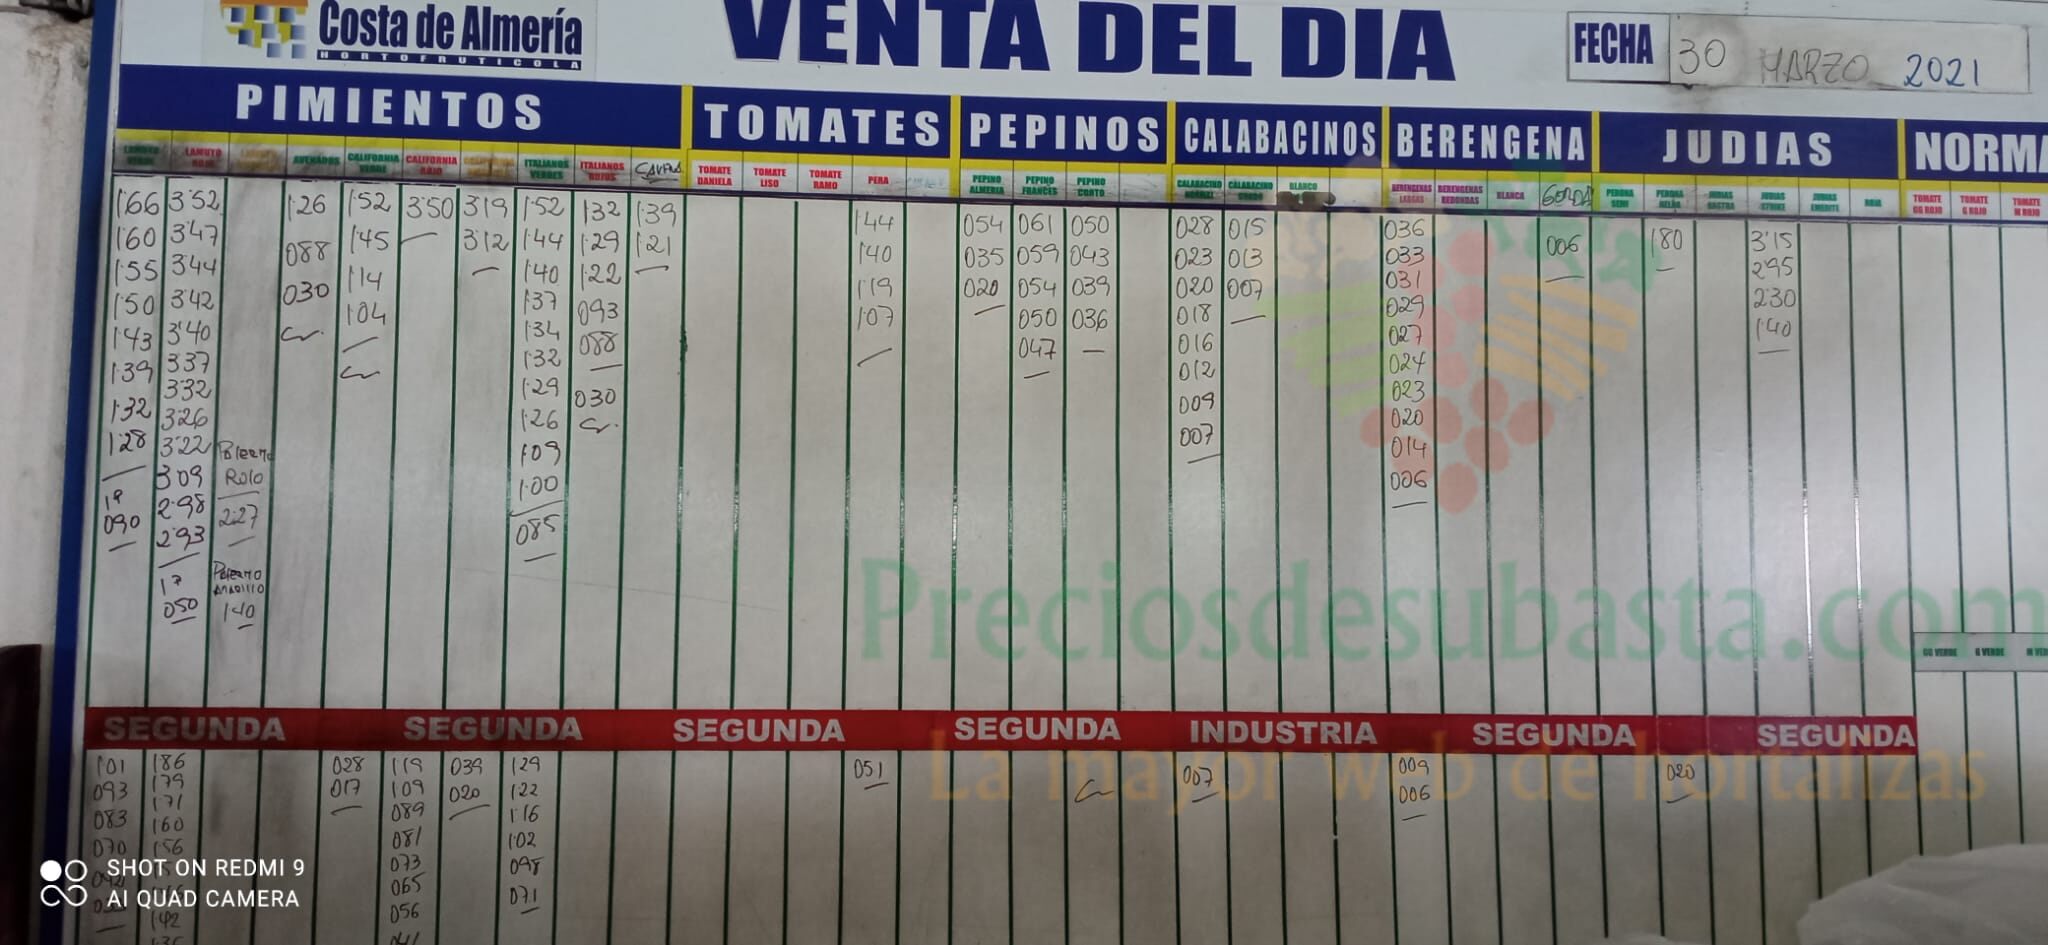 Costa de Almería
HORTOFRUTICOLA
VENTA DEL DIA
FECHA 30 MARZO 2021
PIMIENTOS TOMATES PEPINOS CALABACINOS BERENGENA JUDIAS
LAMUYO ROJO AVENADOS CALIFORNIA VERDE CALIFORNIA ROJO ITALIANOS VERDES ITALIANOS ROJOS
TOMATE DANIELA TOMATE LISO TOMATE RAMO PERA
PEPINO ALMERIA PEPINO FRANCES PEPINO CORTO
CALABACINO NORMAL CALABACINO GORDO BLANCO
BERENGENAS LARGAS BERENGENAS REDONDAS BLANCA GORDA
PERONA SEMI PERONA HELDA JUDIAS STRIKE ROJA
TOMATE GG ROJO TOMATE G ROJO TOMATE M ROJO
1'66 3'52 1'26 1'52 3'50 3'19 1'52 1'32 1'39 1'44 054 061 050 028 015 036 006 1'80 3'15
1'60 3'47 088 1'45 3'12 1'44 1'29 1'21 1'40 035 059 043 023 013 033 2'95
1'55 3'44 030 1'14 1'40 1'22 1'19 020 054 039 020 007 031 2'30
1'50 3'42 1'04 1'37 093 1'07 050 036 018 029 1'40
1'43 3'40 1'34 088 047 016 027
1'39 3'37 1'32 012 024
3'32 1'29 030 009 023
1'32 3'26 1'26 007 020
1'28 3'22 Palermo 1'09 014
3'09 Rojo 1'00 006
2'98 2'27
090 2'93 085
Palermo
Amarillo
050 1'40
Preciosdesubasta.com
GG VERDE G VERDE
SEGUNDA SEGUNDA SEGUNDA SEGUNDA INDUSTRIA SEGUNDA SEGUNDA
La mayor web de hortalizas
101 186 028 119 039 129 051 007 009 020
093 179 017 109 020 122 006
083 171 089 1'16
070 160 081 1'02
156 073 098
065 071
142 056
SHOT ON REDMI 9
AI QUAD CAMERA